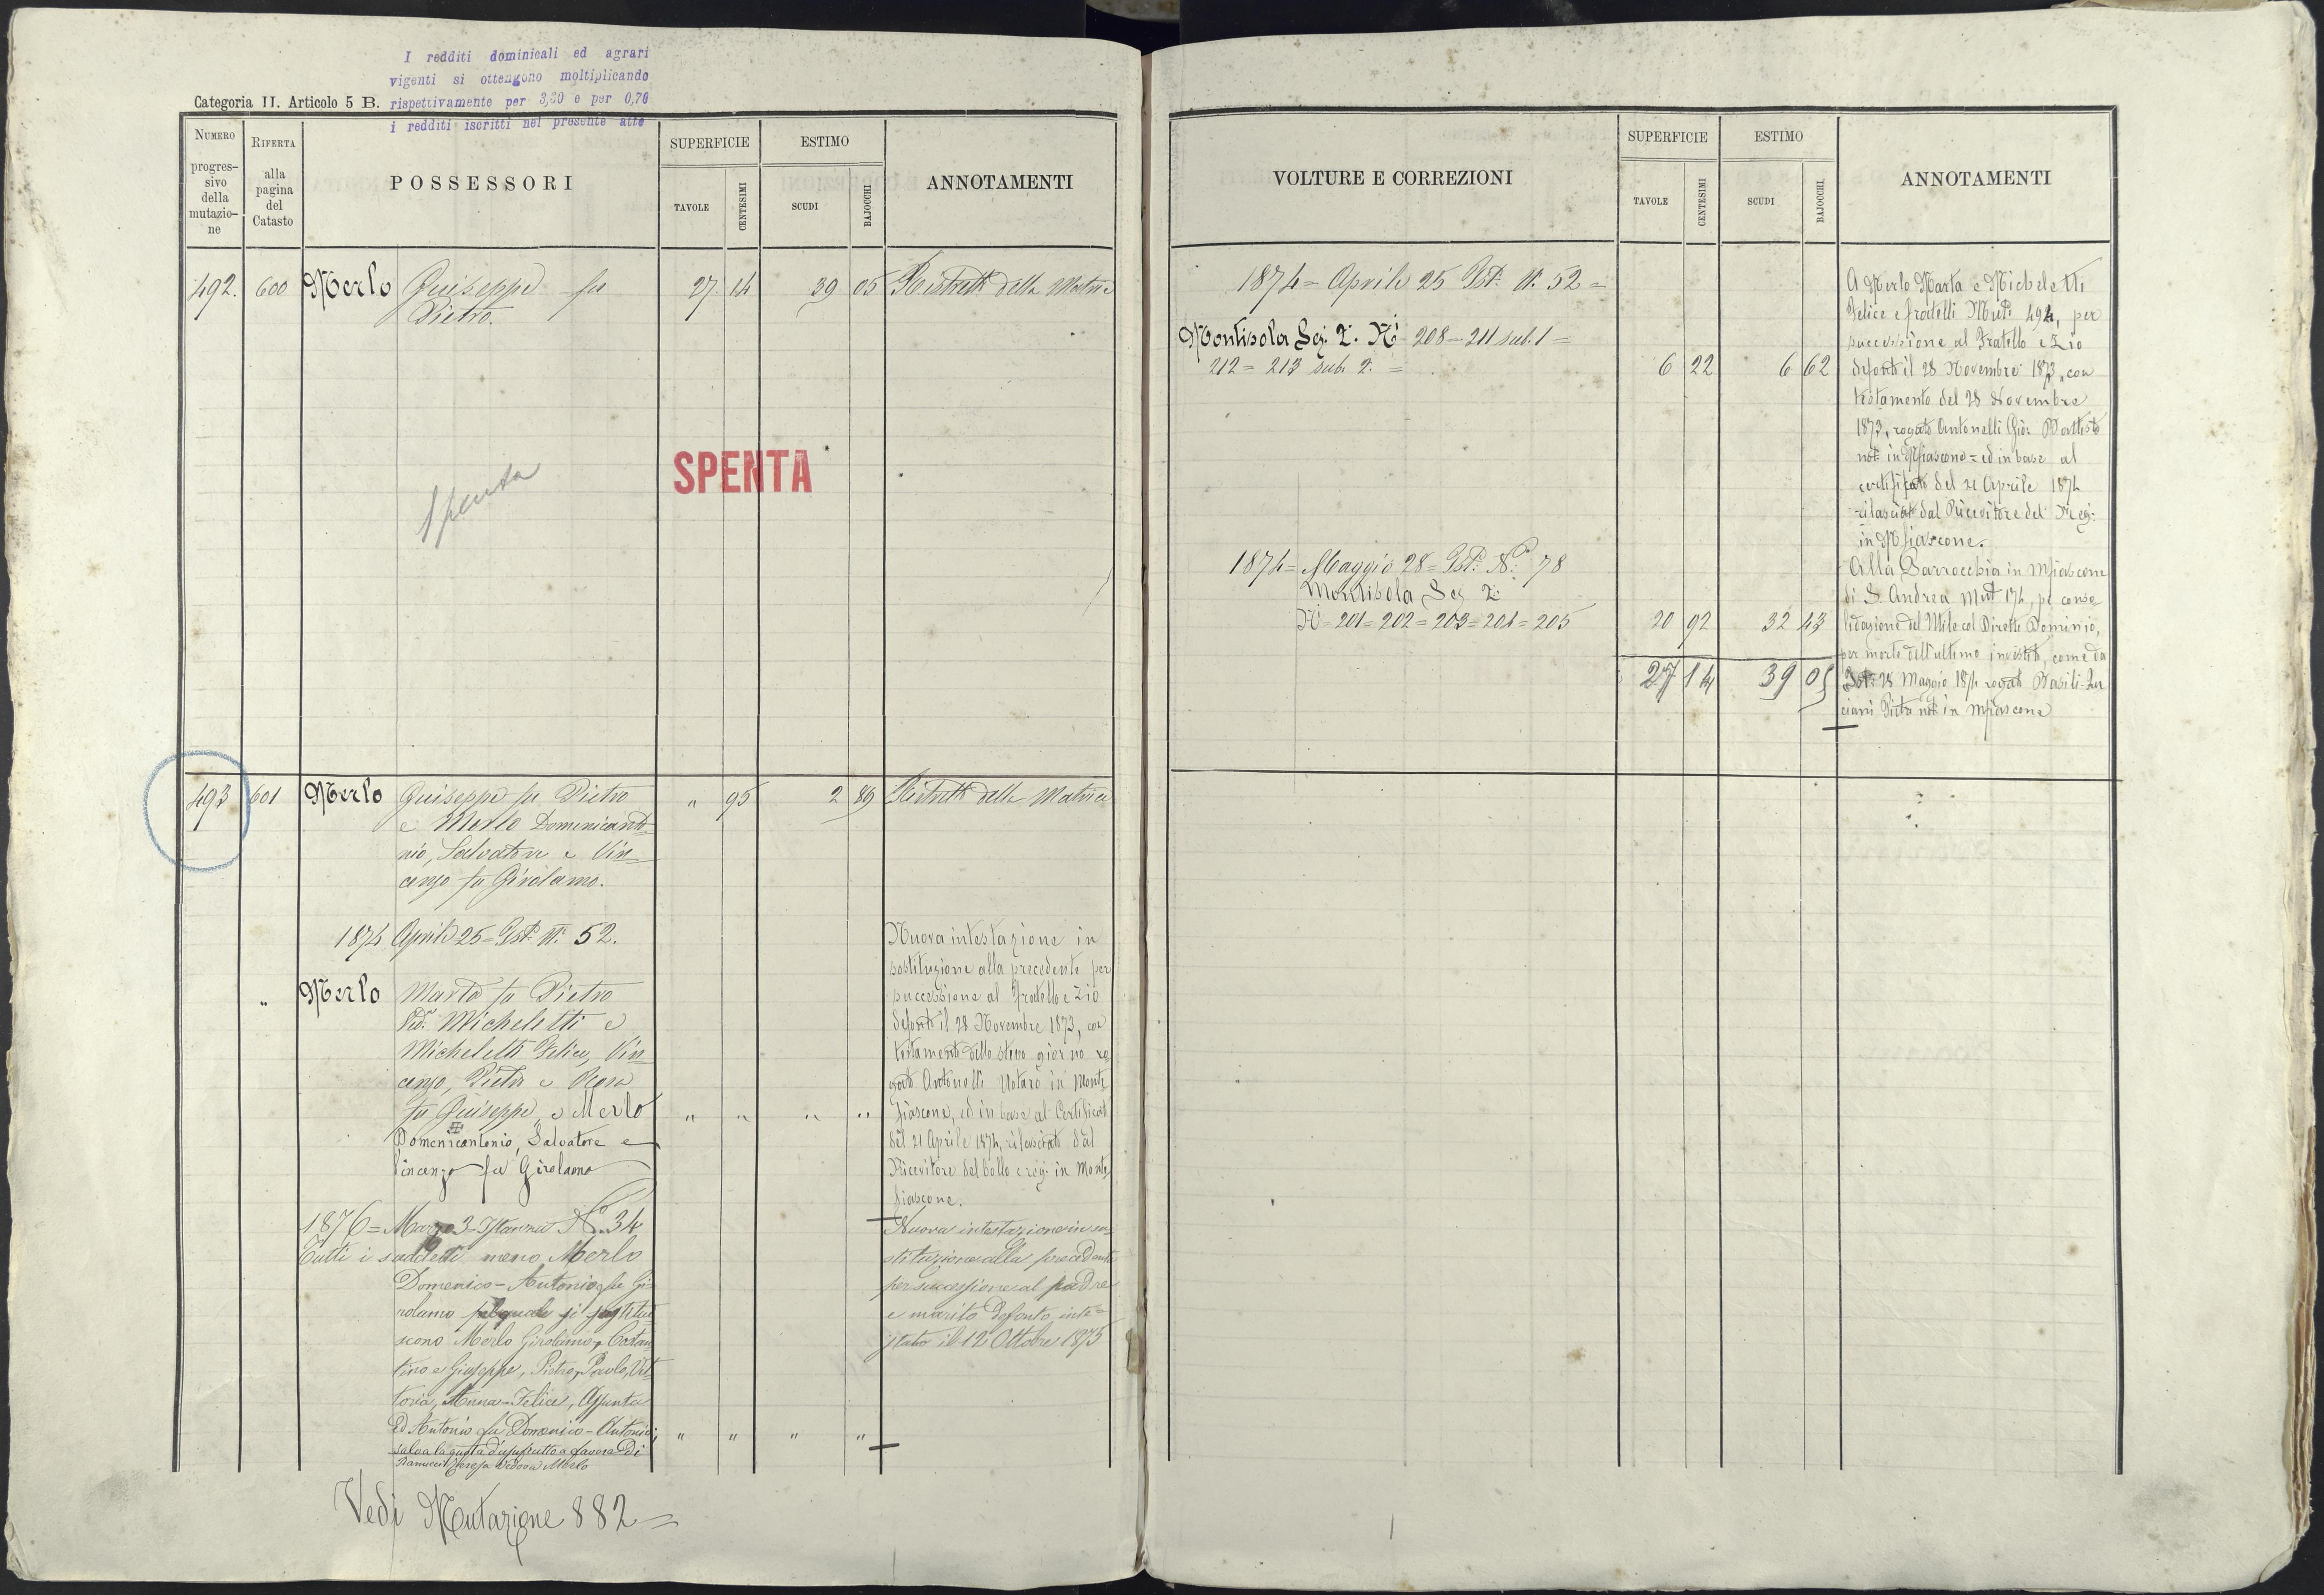 I redditi dominicali ed agrari
vigenti si ottengono moltiplicando
rispettivamente per 3,30 e per 0,70
i redditi iscritti nel presente atto
Categoria II. Articolo 5 B.
NUMERO progres- sivo della mutazio- ne
RIFERTA alla pagina del Catasto
POSSESSORI
SUPERFICIE
TAVOLE
CENTESIMI
ESTIMO
SCUDI
BAJOCCHI
ANNOTAMENTI
492. 600 Merlo Giuseppe fu 27 14 39 05 Ristretto della Matrice
Pietro.
Spenta
SPENTA
493 601 Merlo Giuseppe fu Pietro " 95 2 89 Ristretto della Matrice
e Merlo Domenicanto-
nio, Salvatore e Vin-
cenzo fu Girolamo.
1874 Aprile 25 = Ist. N. 52.
" Merlo Marta fu Pietro
Ved. Micheletti e
Micheletti Felice, Vin
cenzo, Pietro e Rosa
fu Giuseppe, e Merlo " " " "
Domenicantonio, Salvatore e
Vincenzo fu Girolamo
Nuova intestazione in
sostituzione alla precedente per
successione al fratello e Zio
defonto il 28 Novembre 1873, con
testamento dello stesso giorno ro
gato Antonelli Notaro in Monte
fiascone, ed in base al Certificato
del 21 Aprile 1874, rilasciato dal
Ricevitore del bollo e reg. in Monte
fiascone.
1876 = Marzo 3 Istanza N. 34
Tutti i suddetti meno Merlo
Domenico-Antonio fu Gi-
rolamo pel quale si sostitui
scono Merlo Girolamo, Costan
tino e Giuseppe, Pietro, Paolo, Vit
toria, Anna-Felice, Assunta
ed Antonio fu Domenico-Antonio; " " " "
salva la quota d'usufrutto a favore di
Teresa vedova Merlo
Nuova intestazione in so
stituzione alla precedente
per successione al padre
e marito defonto inte=
stato il 12 Ottobre 1875
Vedi Mutazione 882=
VOLTURE E CORREZIONI
SUPERFICIE
TAVOLE
CENTESIMI
ESTIMO
SCUDI
BAJOCCHI
ANNOTAMENTI
1874 = Aprile 25 Ist. N. 52 =
Montisola Sez. 2. Ni 208 - 211 sub. 1 =
212 = 213 sub. 2. = 6 22 6 62
A Merlo Marta e Micheletti
Felice e fratelli Mut. 494, per
successione al Fratello e Zio
defonto il 28 Novembre 1873, con
testamento del 28 Novembre
1873, rogato Antonelli Gio: Battista
not. in Mfiascone = ed in base al
certificato del 21 Aprile 1874
rilasciato dal Ricevitore del Reg.
in Mfiascone.
1874 = Maggio 28 = Ist. N. 78
Montisola Sez 2.
Ni = 201 = 202 = 203 = 204 = 205 20 92 32 43
27 14 39 05
Alla Parrocchia in Mfiascone
di S. Andrea Mut 174, per conso
lidazione del Utile col Diretto Dominio,
per morte dell'ultimo investito, come da
Ist. 28 Maggio 1874 rogato Basili-Lu
ciani Pietro not. in Mfiascone